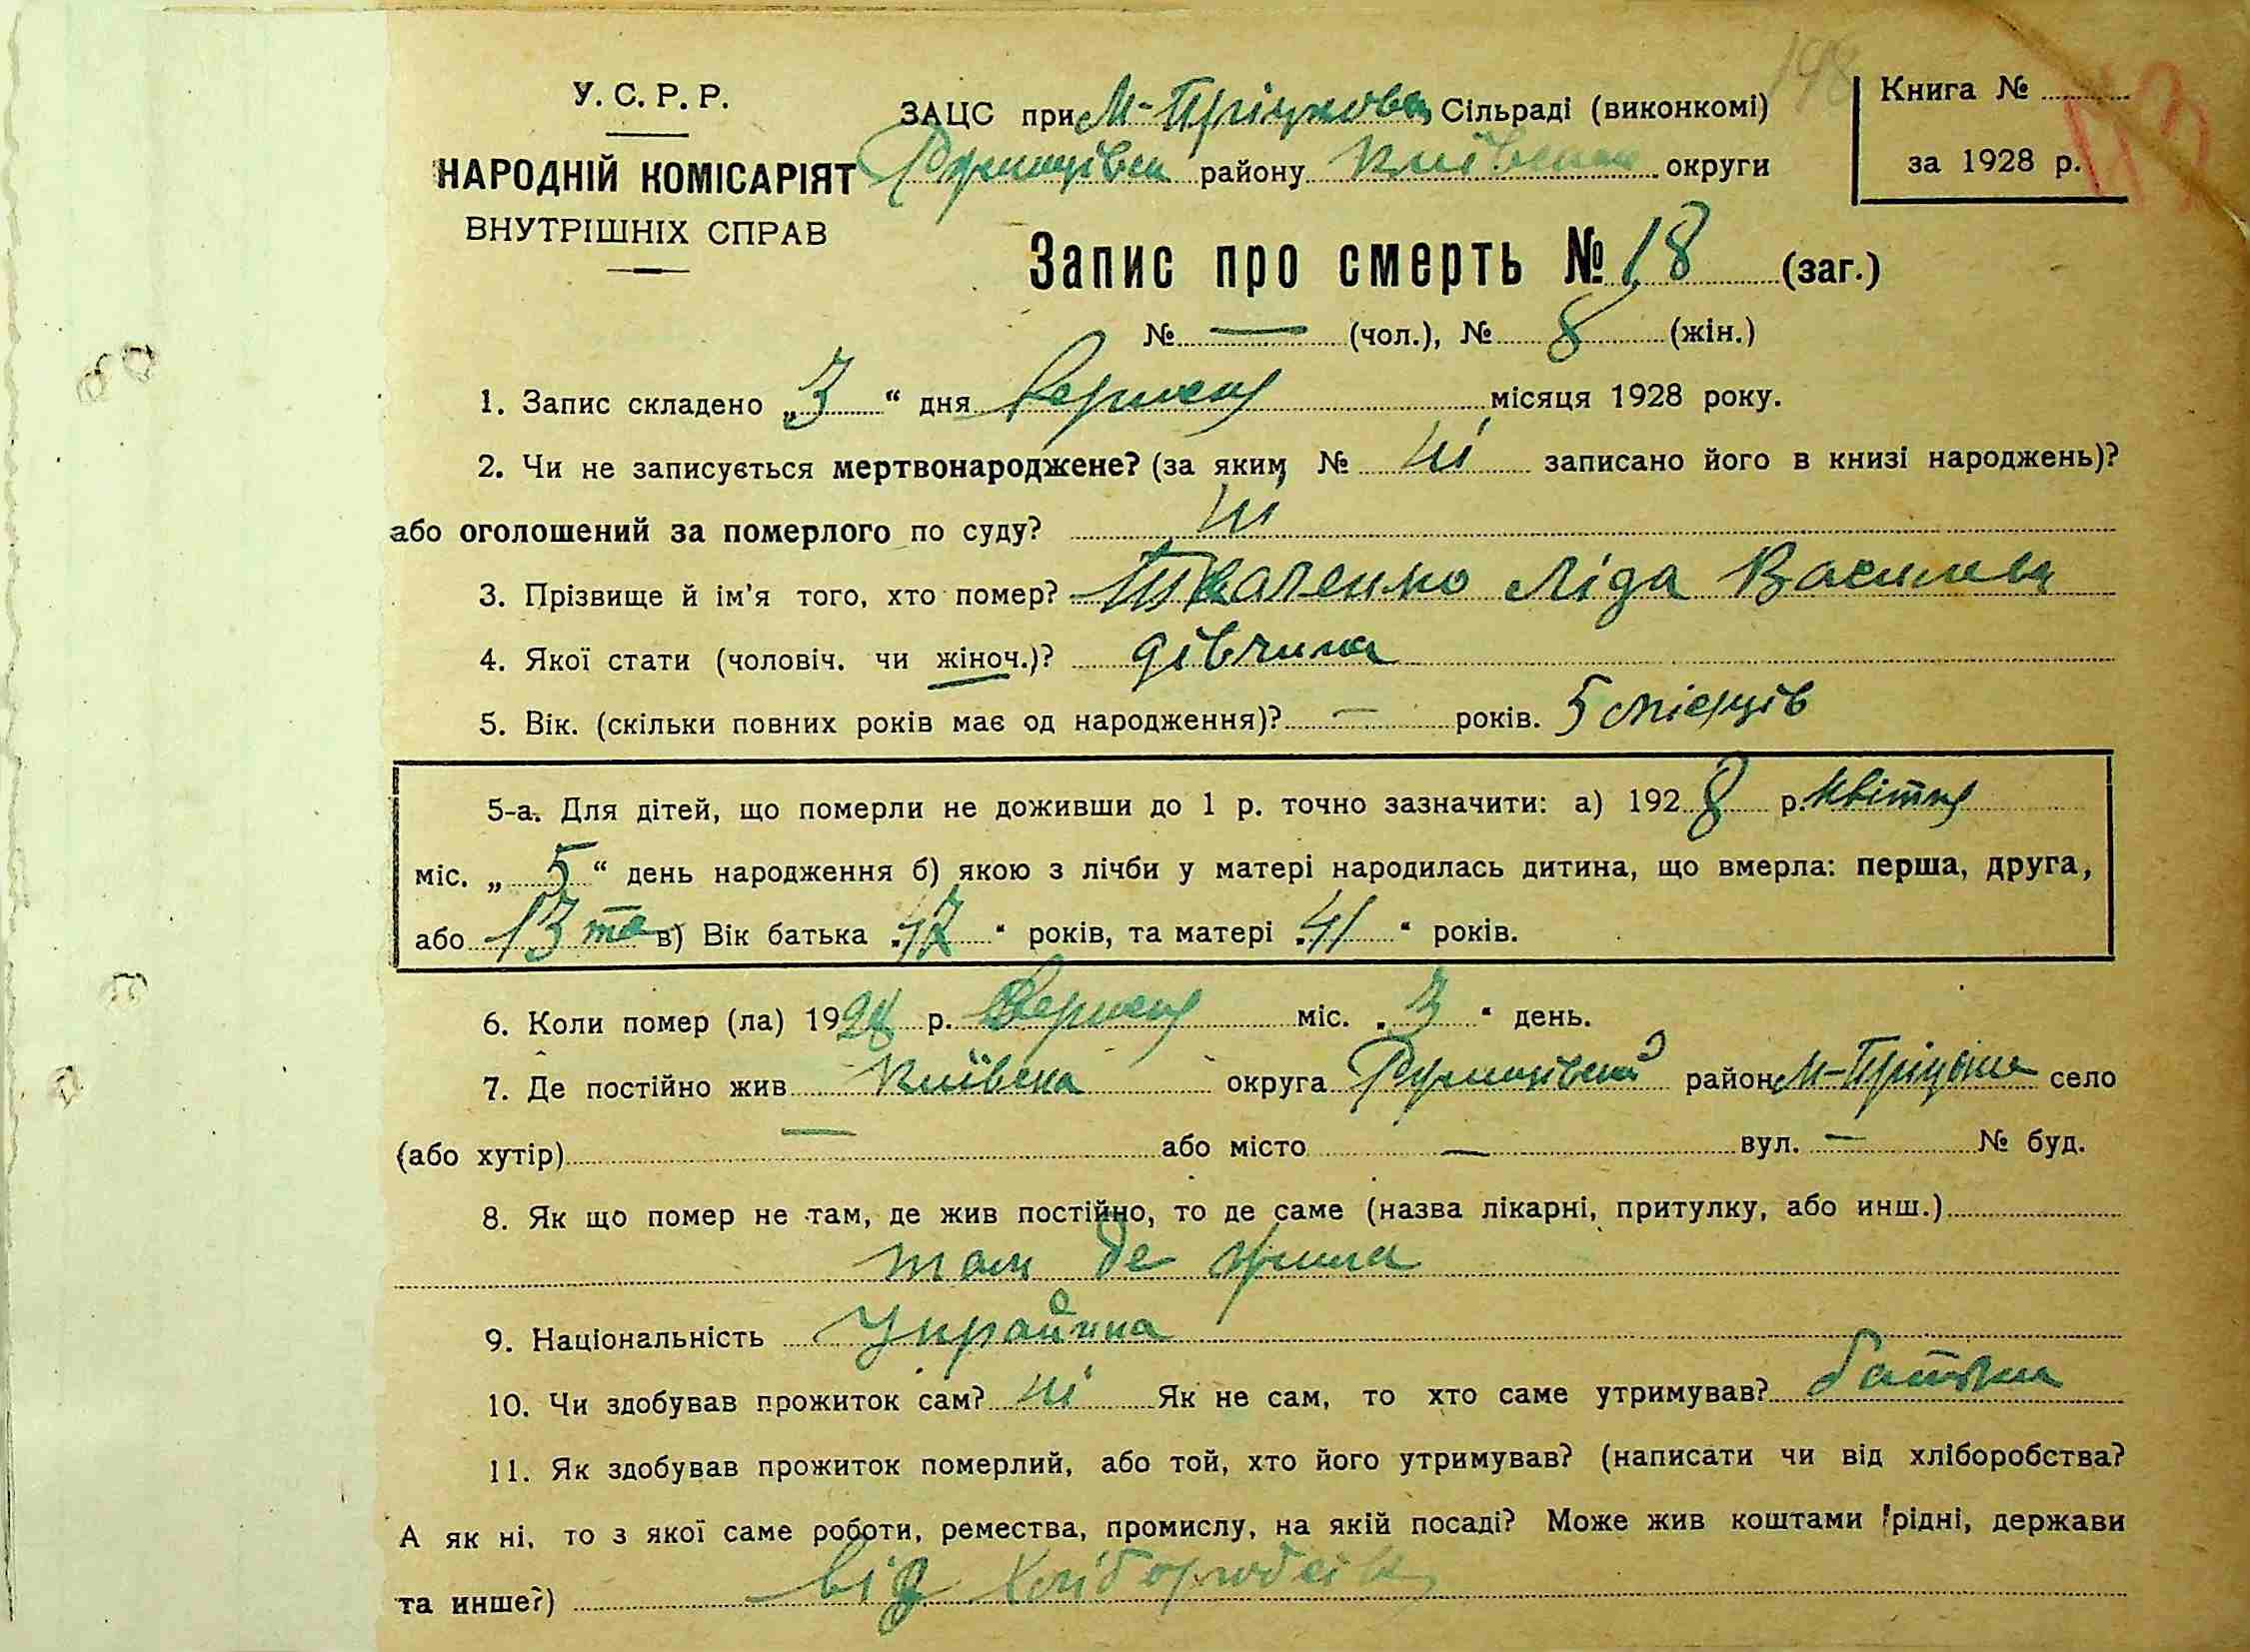 198
У. С. Р. Р.
НАРОДНІЙ КОМІСАРІЯТ
ВНУТРІШНІХ СПРАВ
ЗАЦС при М-Пріцьковс Сільраді (виконкомі)
району Київської округи
Книга №
за 1928 р.
Запис про смерть № 18 (заг.)
№ — (чол.), № 8 (жін.)
1. Запис складено „ 3 “ дня Вересня місяця 1928 року.
2. Чи не записується мертвонароджене? (за яким № ні записано його в книзі народжень)?
або оголошений за померлого по суду? ні
3. Прізвище й ім'я того, хто помер? Ткаченко Ліда Василева
4. Якої стати (чоловіч. чи жіноч.)? дівчина
5. Вік. (скільки повних років має од народження)? — років. 5 місяців
5-а. Для дітей, що померли не доживши до 1 р. точно зазначити: а) 1928 р. квітня
міс. „ 5 “ день народження б) якою з лічби у матері народилась дитина, що вмерла: перша, друга,
або 13 та в) Вік батька „47“ років, та матері „41“ років.
6. Коли помер (ла) 1928 р. Вересня міс. „ 3 “ день.
7. Де постійно жив Київська округа район М-Пріцьки село
(або хутір) — або місто — вул. — № буд.
8. Як що помер не там, де жив постійно, то де саме (назва лікарні, притулку, або инш.)
там де жила
9. Національність Українка
10. Чи здобував прожиток сам? ні Як не сам, то хто саме утримував? батьки
11. Як здобував прожиток померлий, або той, хто його утримував? (написати чи від хліборобства?
А як ні, то з якої саме роботи, ремества, промислу, на якій посаді? Може жив коштами рідні, держави
та инше?) від хліборобства